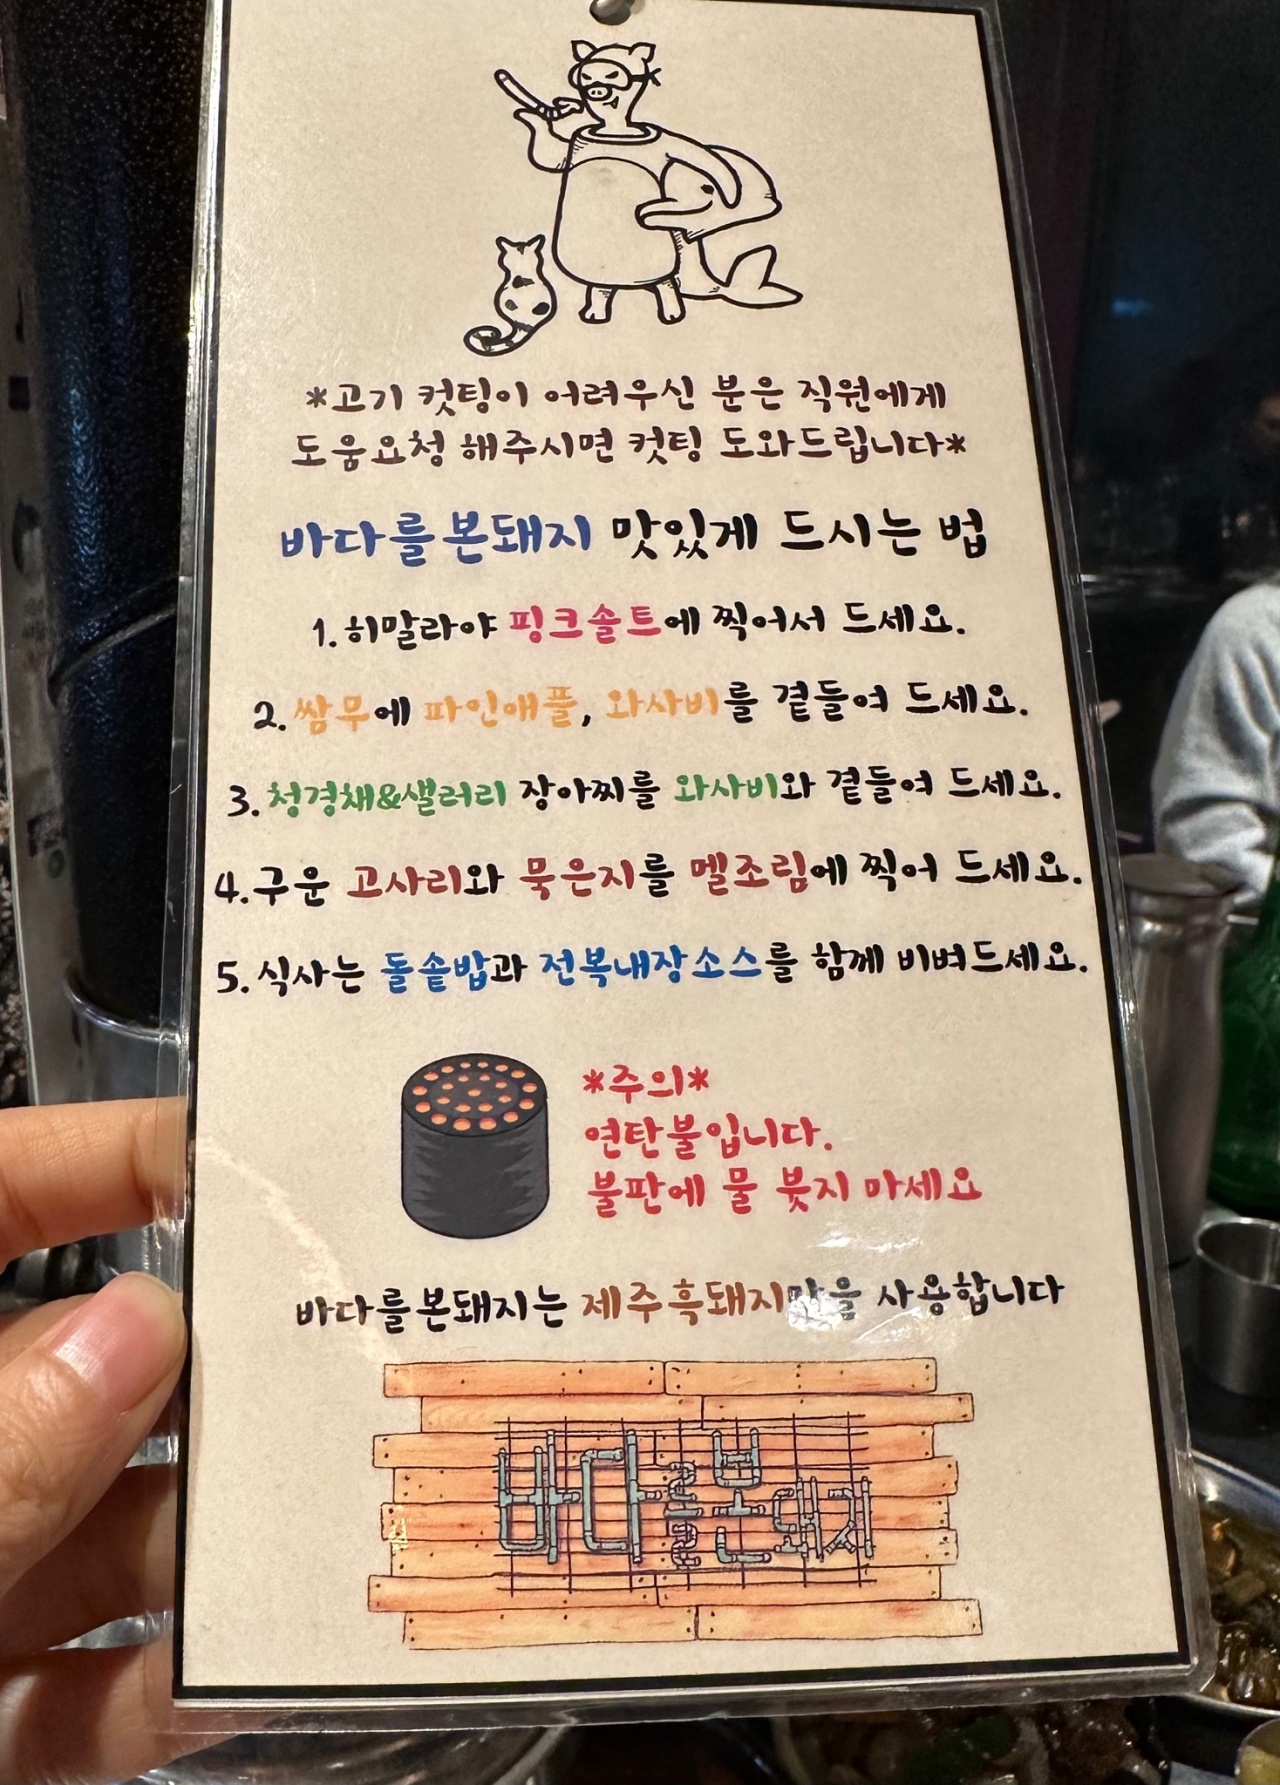 *고기 컷팅이 어려우신 분은 직원에게
도움요청 해주시면 컷팅 도와드립니다*
바다를본돼지 맛있게 드시는 법
1.히말라야 핑크솔트에 찍어서 드세요.
2.쌈무에 파인애플, 와사비를 곁들여 드세요.
3.청경채&샐러리 장아찌를 와사비와 곁들여 드세요.
4.구운 고사리와 묵은지를 멜조림에 찍어 드세요.
5.식사는 돌솥밥과 전복내장소스를 함께 비벼드세요.
*주의*
연탄불입니다.
불판에 물 붓지 마세요
바다를본돼지는 제주흑돼지만을 사용합니다
바다를본돼지